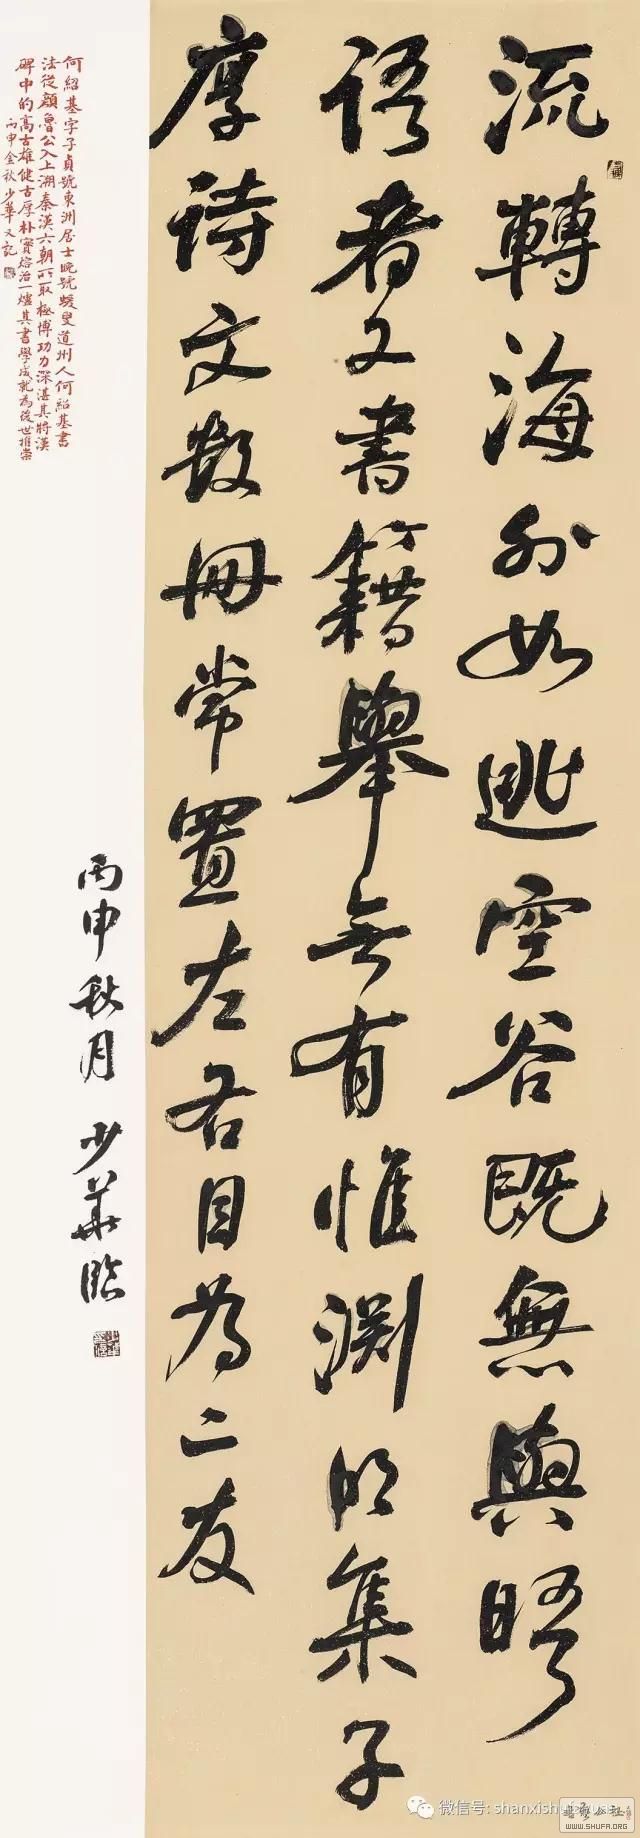 流轉海外如逃空谷既無與晤
語者又書籍舉無有惟淵明集子
厚詩文數冊常置左右目為二友
丙申秋月 少華臨
何紹基字子貞號東洲居士晚號蝯叟道州人何紹基書
法從顏魯公入上溯秦漢六朝所取極博功力深湛其將漢
碑中的高古雄健古厚朴實熔冶一爐其書學成就為後世推崇
丙申金秋少華又記
微信号: shanxishufayuan
書藝公社
WWW.SHUFA.ORG